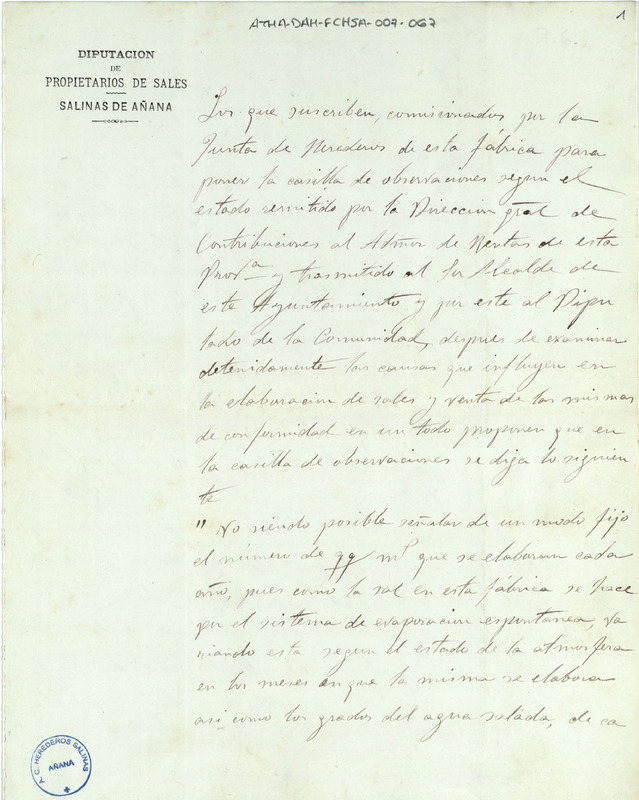 ATHA-DAH-FCHSA-007-067
1
DIPUTACION
DE
PROPIETARIOS DE SALES
SALINAS DE AÑANA
Los que suscriben, comisionados por la
Junta de Herederos de esta fábrica para
poner la casilla de observaciones segun el
estado remitido por la Direccion gral de
Contribuciones al Admor de Rentas de esta
Prova y trasmitido al Sr Alcalde de
este Ayuntamiento y por este al Dipu
tado de la Comunidad, despues de examinar
detenidamente las causas que influyen en
la elaboracion de sales y venta de las mismas
de conformidad en un todo proponen que en
la casilla de observaciones se diga lo siguien
te
" No siendo posible señalar de un modo fijo
el número de qq ms que se elaboran cada
año, pues como la sal en esta fábrica se hace
por el sistema de evaporacion espontanea, va
riando esta segun el estado de la atmosfera
en los meses en que la misma se elabora
asi como los grados del agua salada, de ca
A. C. HEREDEROS SALINAS
AÑANA